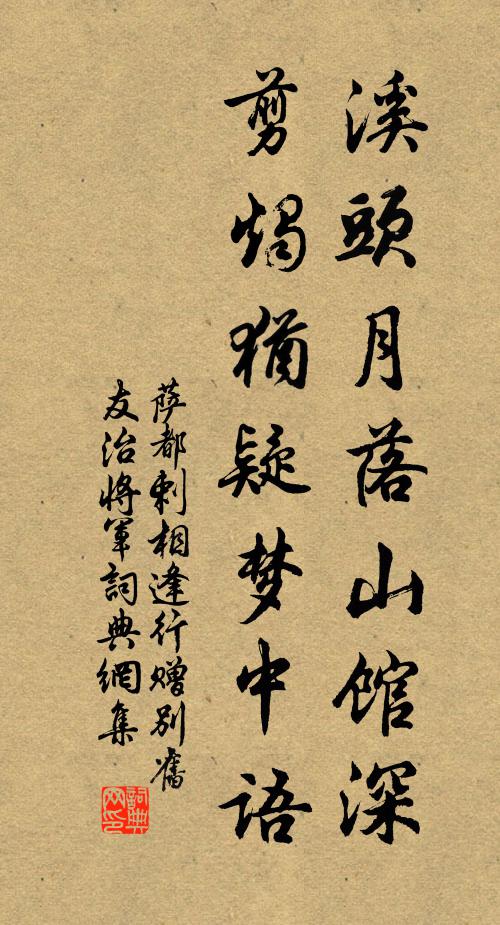 溪頭月落山館深
剪燭猶疑梦中語
萨都剌相逢行赠别舊
友治將軍詞典網集
詞典网印